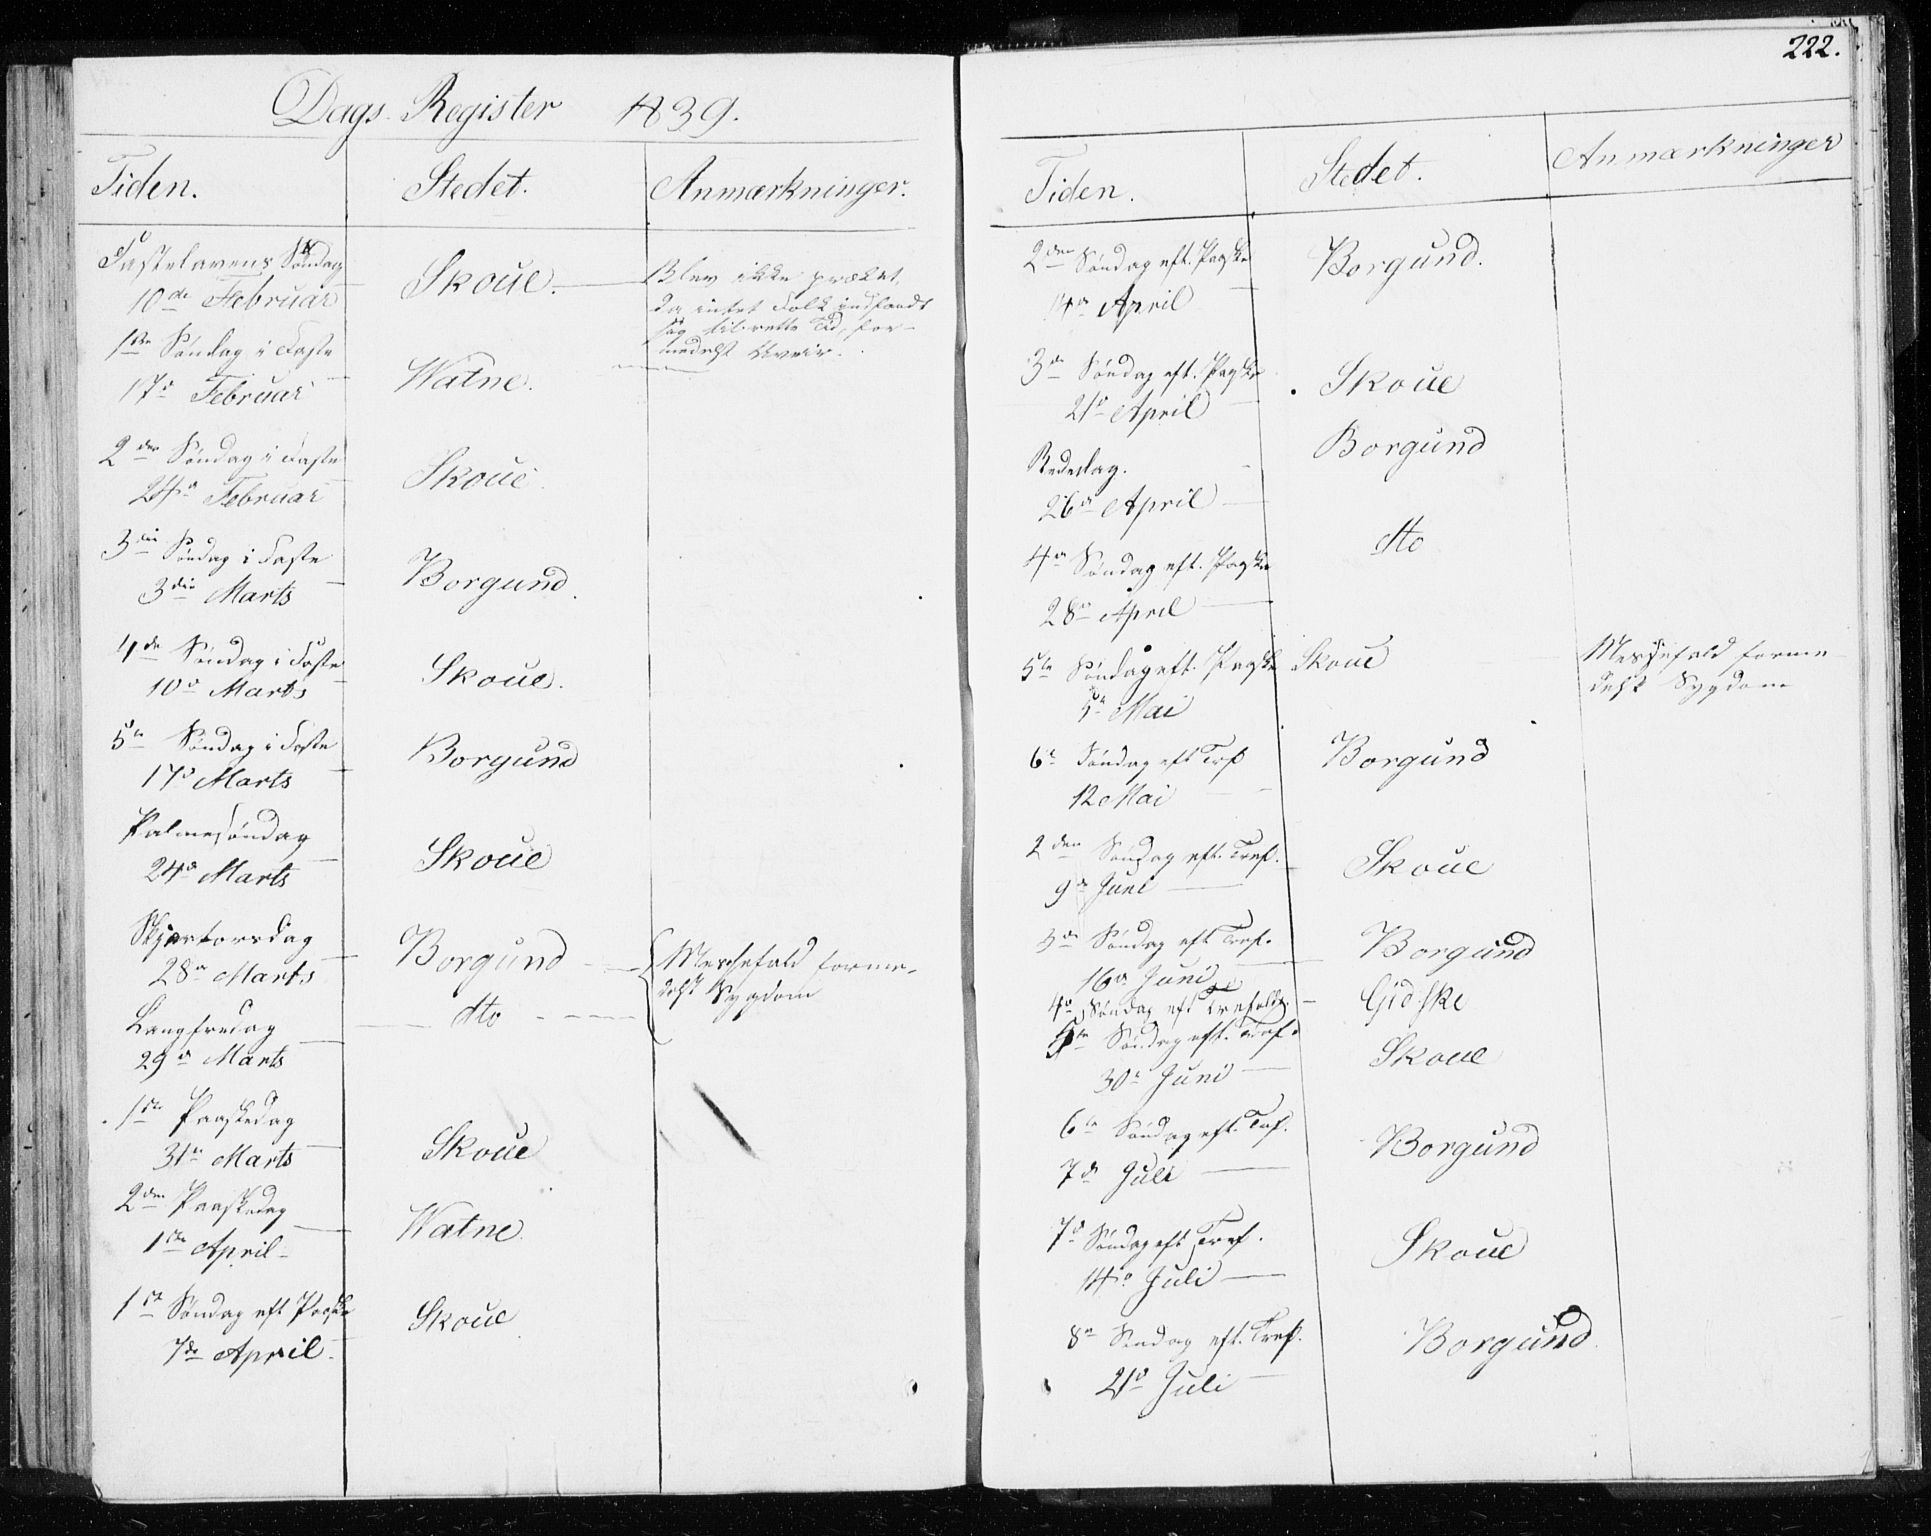 Dags Register 1839.
Tiden. Stedet. Anmærkninger.
Fastelavens Søndag
10de Februar Skoue. Blev ikke prædket,
da intet Folk indfandt
sig til rette Tid, for-
medelst Uveir.
1ste Søndag i Faste
17d Februar Watne.
2den Søndag i Faste
24d Februar Skoue.
3die Søndag i Faste
3die Marts Borgund.
4de Søndag i Faste
10d Marts Skoue.
5te Søndag i Faste
17d Marts Borgund
Palmesøndag
24d Marts Skoue
Skjærtorsdag
28d Marts Borgund Messefald forme-
delst Sygdom
Langfredag
29d Marts dto
1ste Paaskedag
31te Marts Skoue
2den Paaskedag
1ste April Watne.
1ste Søndag eft Paaske
7de April Skoue
222.
Tiden. Stedet. Anmærkninger
2den Søndag eft. Paaske
14d April Borgund.
3de Søndag eft. Paaske
21d April Skoue
Bededag.
26d April Borgund
4d Søndag eft. Paaske
28d April dto
5te Søndag eft. Paaske Skoue Messefald forme-
5te Mai delst Sygdom
6te Søndag eft
12 Mai Borgund
2den Søndag eft. Tref.
9d Juni Skoue
3de Søndag eft Tref.
16d Juni Borgund
4d Søndag eft Trefoldg. Gidske
5te Søndag eft. Tref.
30te Juni Skoue
6te Søndag eft. Tref.
7d Juli Borgund
7d Søndag eft Tref.
14d Juli Skoue
8d Søndag eft. Tref.
21d Juli Borgund.